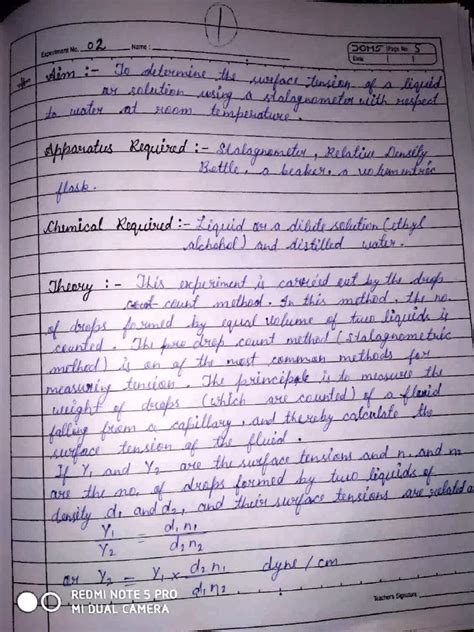 1
Experiment No. 02 Name:
DOMS Page No. 5
Date / /
Aim :- To determine the surface tension of a liquid
or solution using a stalagnometer with respect
to water at room temperature.
Apparatus Required :- Stalagnometer, Relative Density
Bottle, a beaker, a
flask.
Chemical Required :- Liquid or a dilute solution (ethyl
alchohol) and distilled water.
Theory :- This experiment is carried out by the drop
count method. In this method, the no.
of drops formed by equal volume of two liquids is
counted. The drop count method (stalagnometric
method) is on of the most common methods for
measuring tension. The principle is to measure the
weight of drops (which are counted) of a fluid
falling from a capillary, and thereby calculate the
surface tension of the fluid.
If γ1 and γ2 are the surface tensions and n1 and
are the no. of drops formed by two liquids of
density d1 and d2, and their surface tensions are related a
γ1 = d1 n1
γ2 d2 n2
or γ2 = γ1 × d2 n1 dyne / cm
d1 n2
Teacher's Signature:
REDMI NOTE 5 PRO
MI DUAL CAMERA